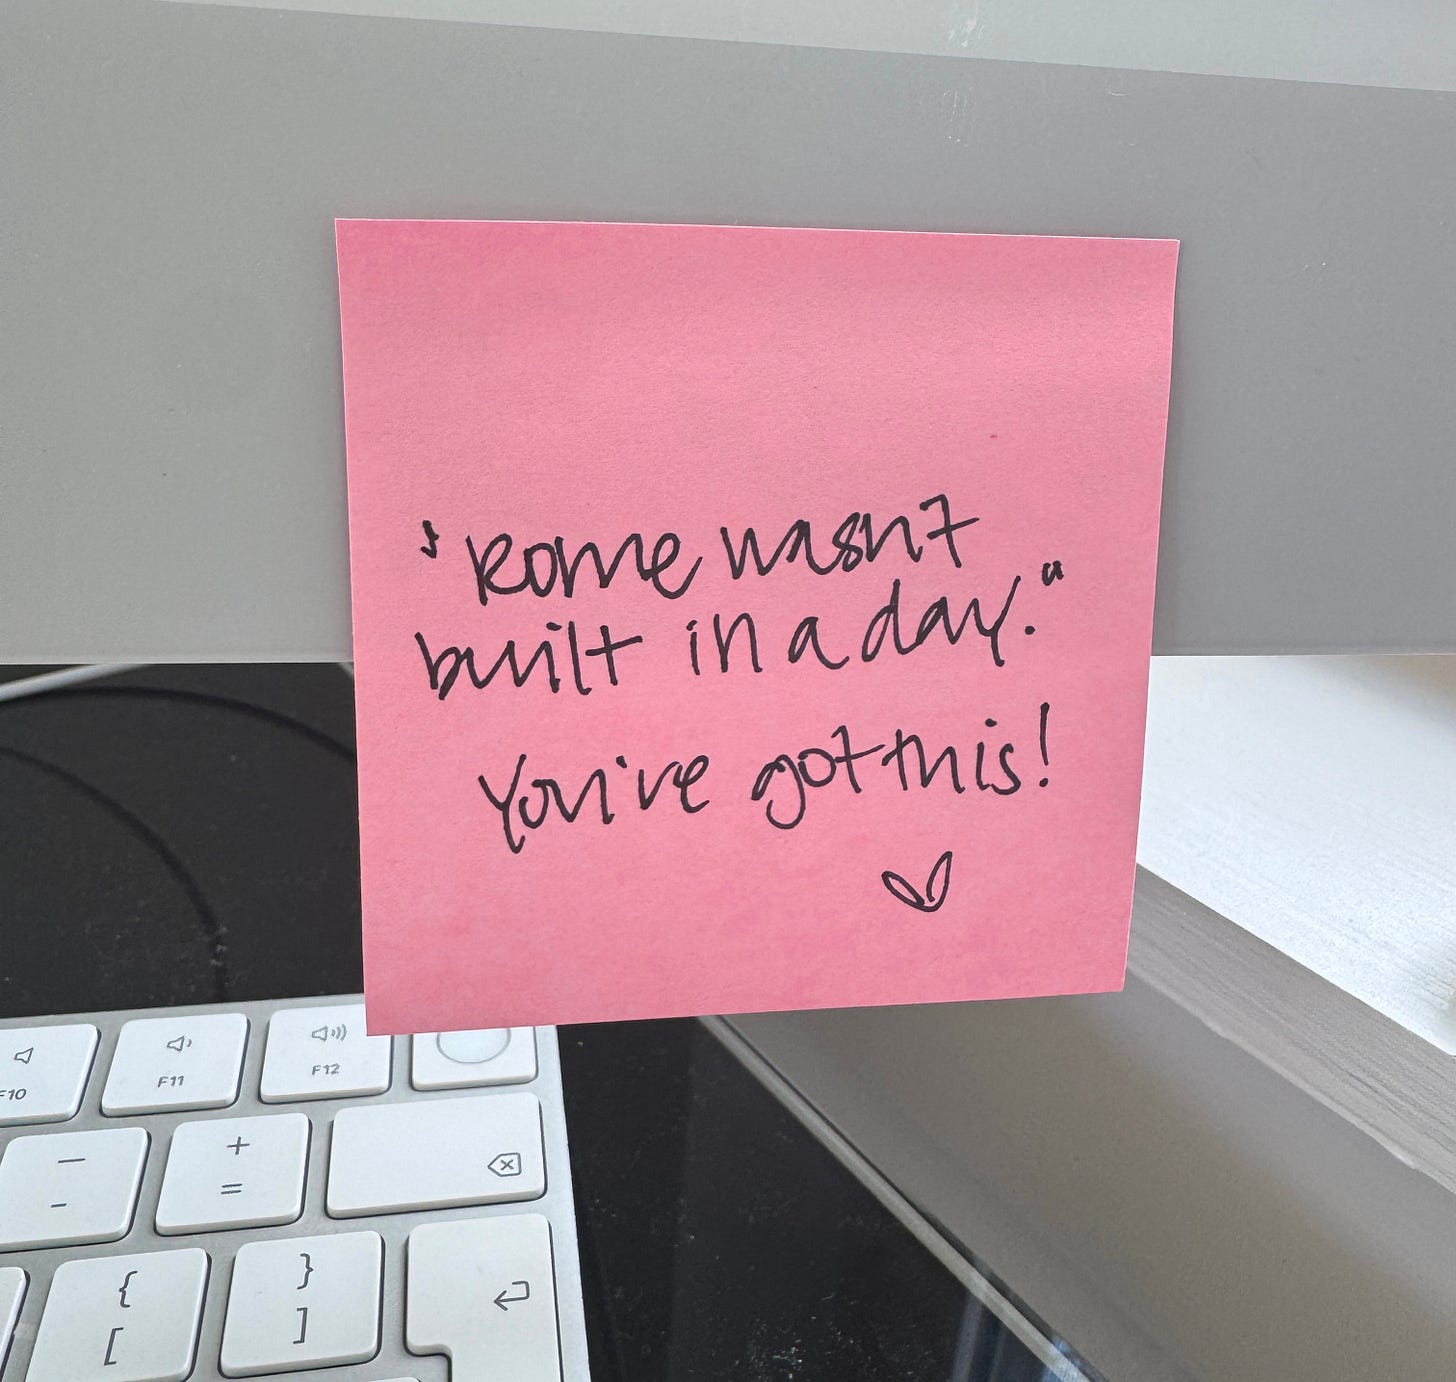 "Rome wasnt
built in a day."
You've got this!
F10
F11
F12
—
-
+
=
{
[
}
]